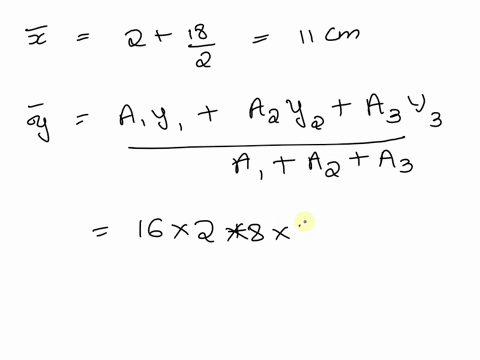 x̄ = 2 + 18/2 = 11 cm
ȳ = A₁y₁ + A₂y₂ + A₃y₃ / A₁ + A₂ + A₃
= 16 × 2 * 8 ×